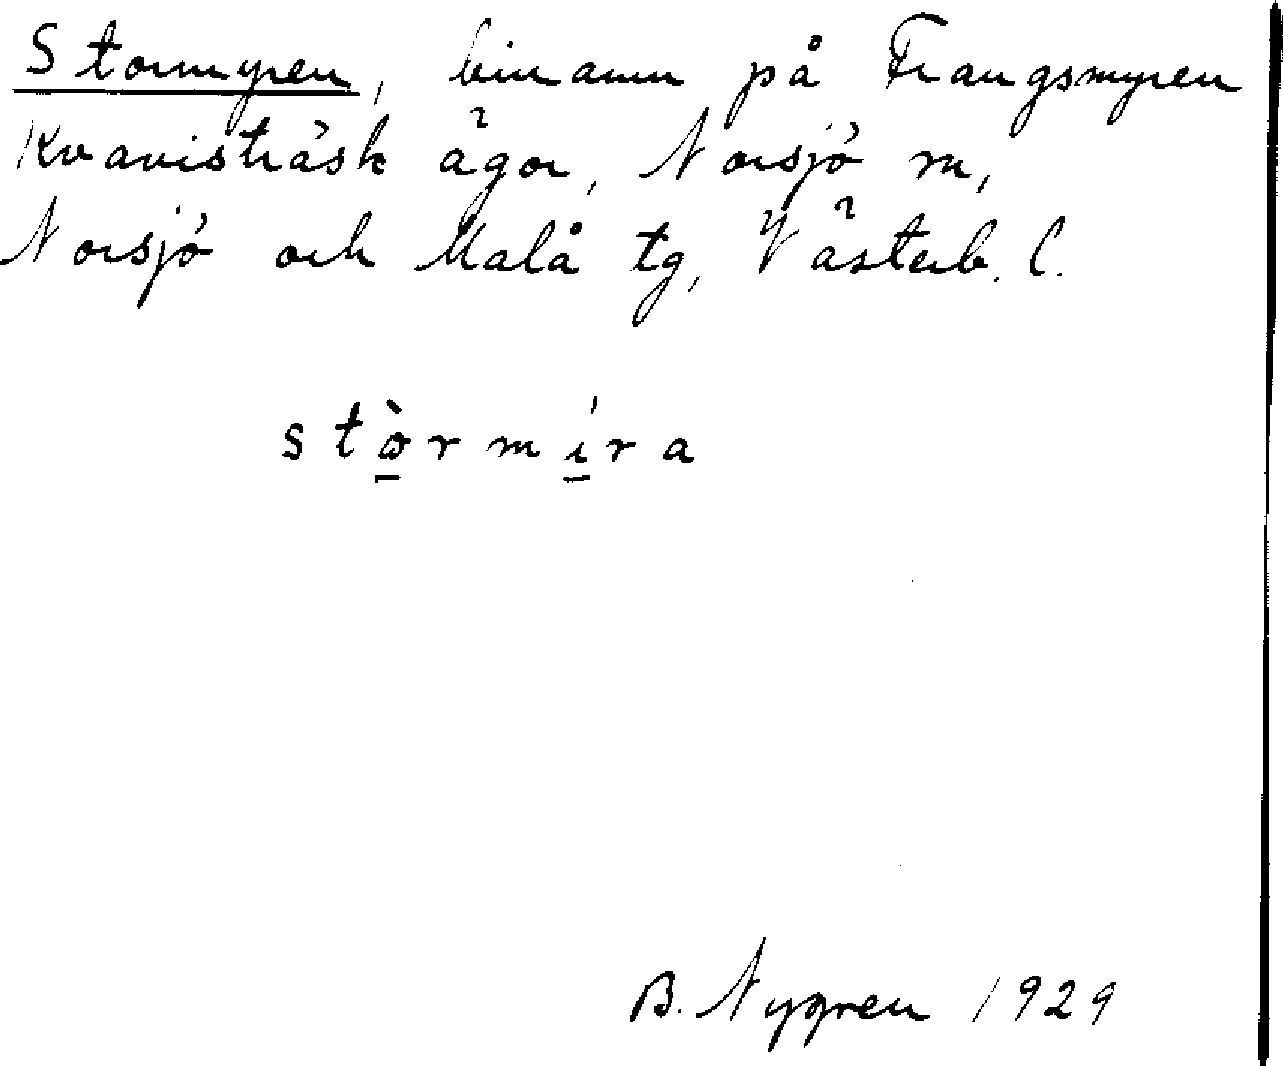 Stormyren, binamn på Frangsmyren
Kvavisträsk ägor, Norsjö sn,
Norsjö och Malå tg, Västerb. l.
stòrmíra
B. Nygren 1929